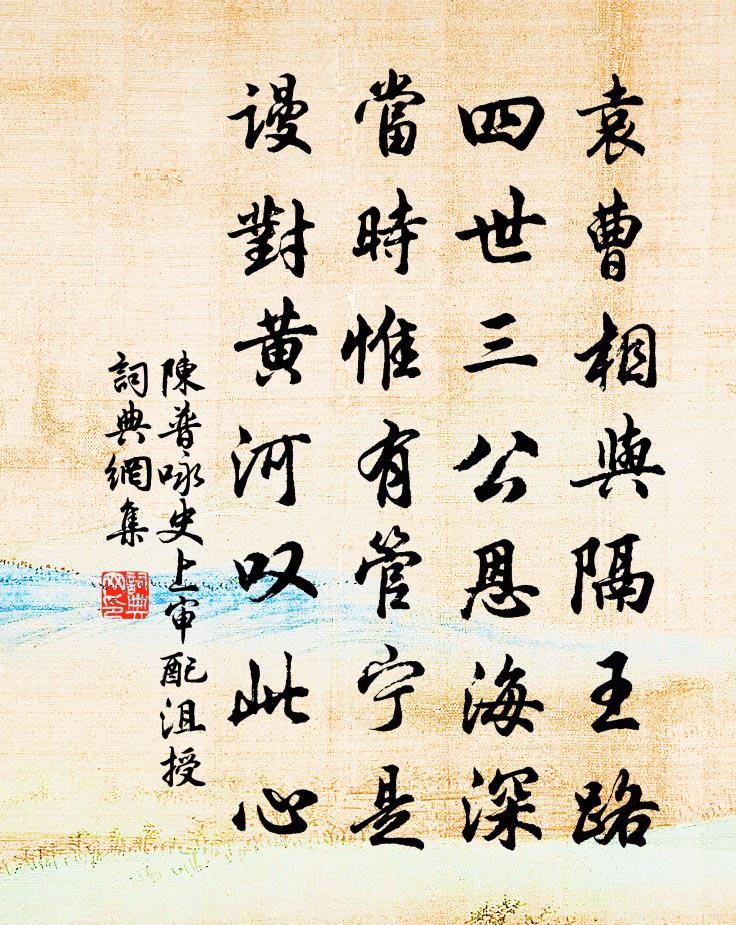 袁曹相與隔王路
四世三公恩海深
當時惟有管宁是
谩對黄河叹此心
陳普咏史上审配沮授
詞典網集
詞典网印